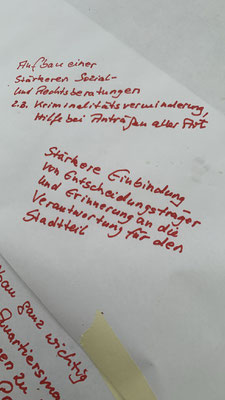 Aufbau einer
Stärkeren Sozial-
und Rechtsberatungen
z.B. Kriminalitätsverminderung,
Hilfe bei Anträgen aller Art
Stärkere Einbindung
von Entscheidungsträger
und Erinnerung an die
Verantwortung für den
Stadtteil
ganz wichtig